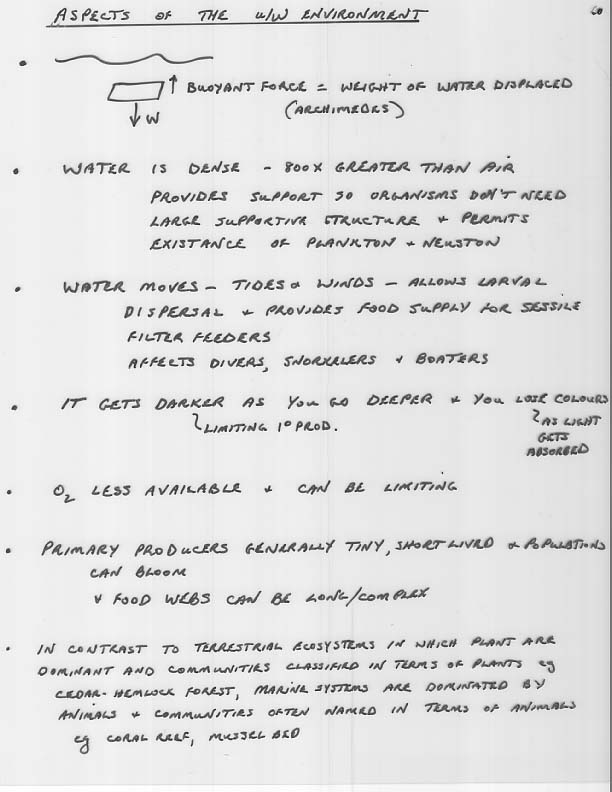 ASPECTS OF THE U/W ENVIRONMENT
BUOYANT FORCE = WEIGHT OF WATER DISPLACED
(ARCHIMEDES)
W
• WATER IS DENSE - 800X GREATER THAN AIR
PROVIDES SUPPORT SO ORGANISMS DON'T NEED
LARGE SUPPORTIVE STRUCTURE & PERMITS
EXISTANCE OF PLANKTON & NEUSTON
• WATER MOVES - TIDES & WINDS - ALLOWS LARVAL
DISPERSAL & PROVIDES FOOD SUPPLY FOR SESSILE
FILTER FEEDERS
AFFECTS DIVERS, SNORKELERS & BOATERS
• IT GETS DARKER AS YOU GO DEEPER & YOU LOSE COLOURS
LIMITING 1° PROD.
AS LIGHT
GETS
ABSORBED
• O₂ LESS AVAILABLE & CAN BE LIMITING
• PRIMARY PRODUCERS GENERALLY TINY, SHORT LIVED & POPULATIONS
CAN BLOOM
& FOOD WEBS CAN BE LONG/COMPLEX
• IN CONTRAST TO TERRESTRIAL ECOSYSTEMS IN WHICH PLANT ARE
DOMINANT AND COMMUNITIES CLASSIFIED IN TERMS OF PLANTS eg
CEDAR-HEMLOCK FOREST, MARINE SYSTEMS ARE DOMINATED BY
ANIMALS & COMMUNITIES OFTEN NAMED IN TERMS OF ANIMALS
eg CORAL REEF, MUSSEL BED